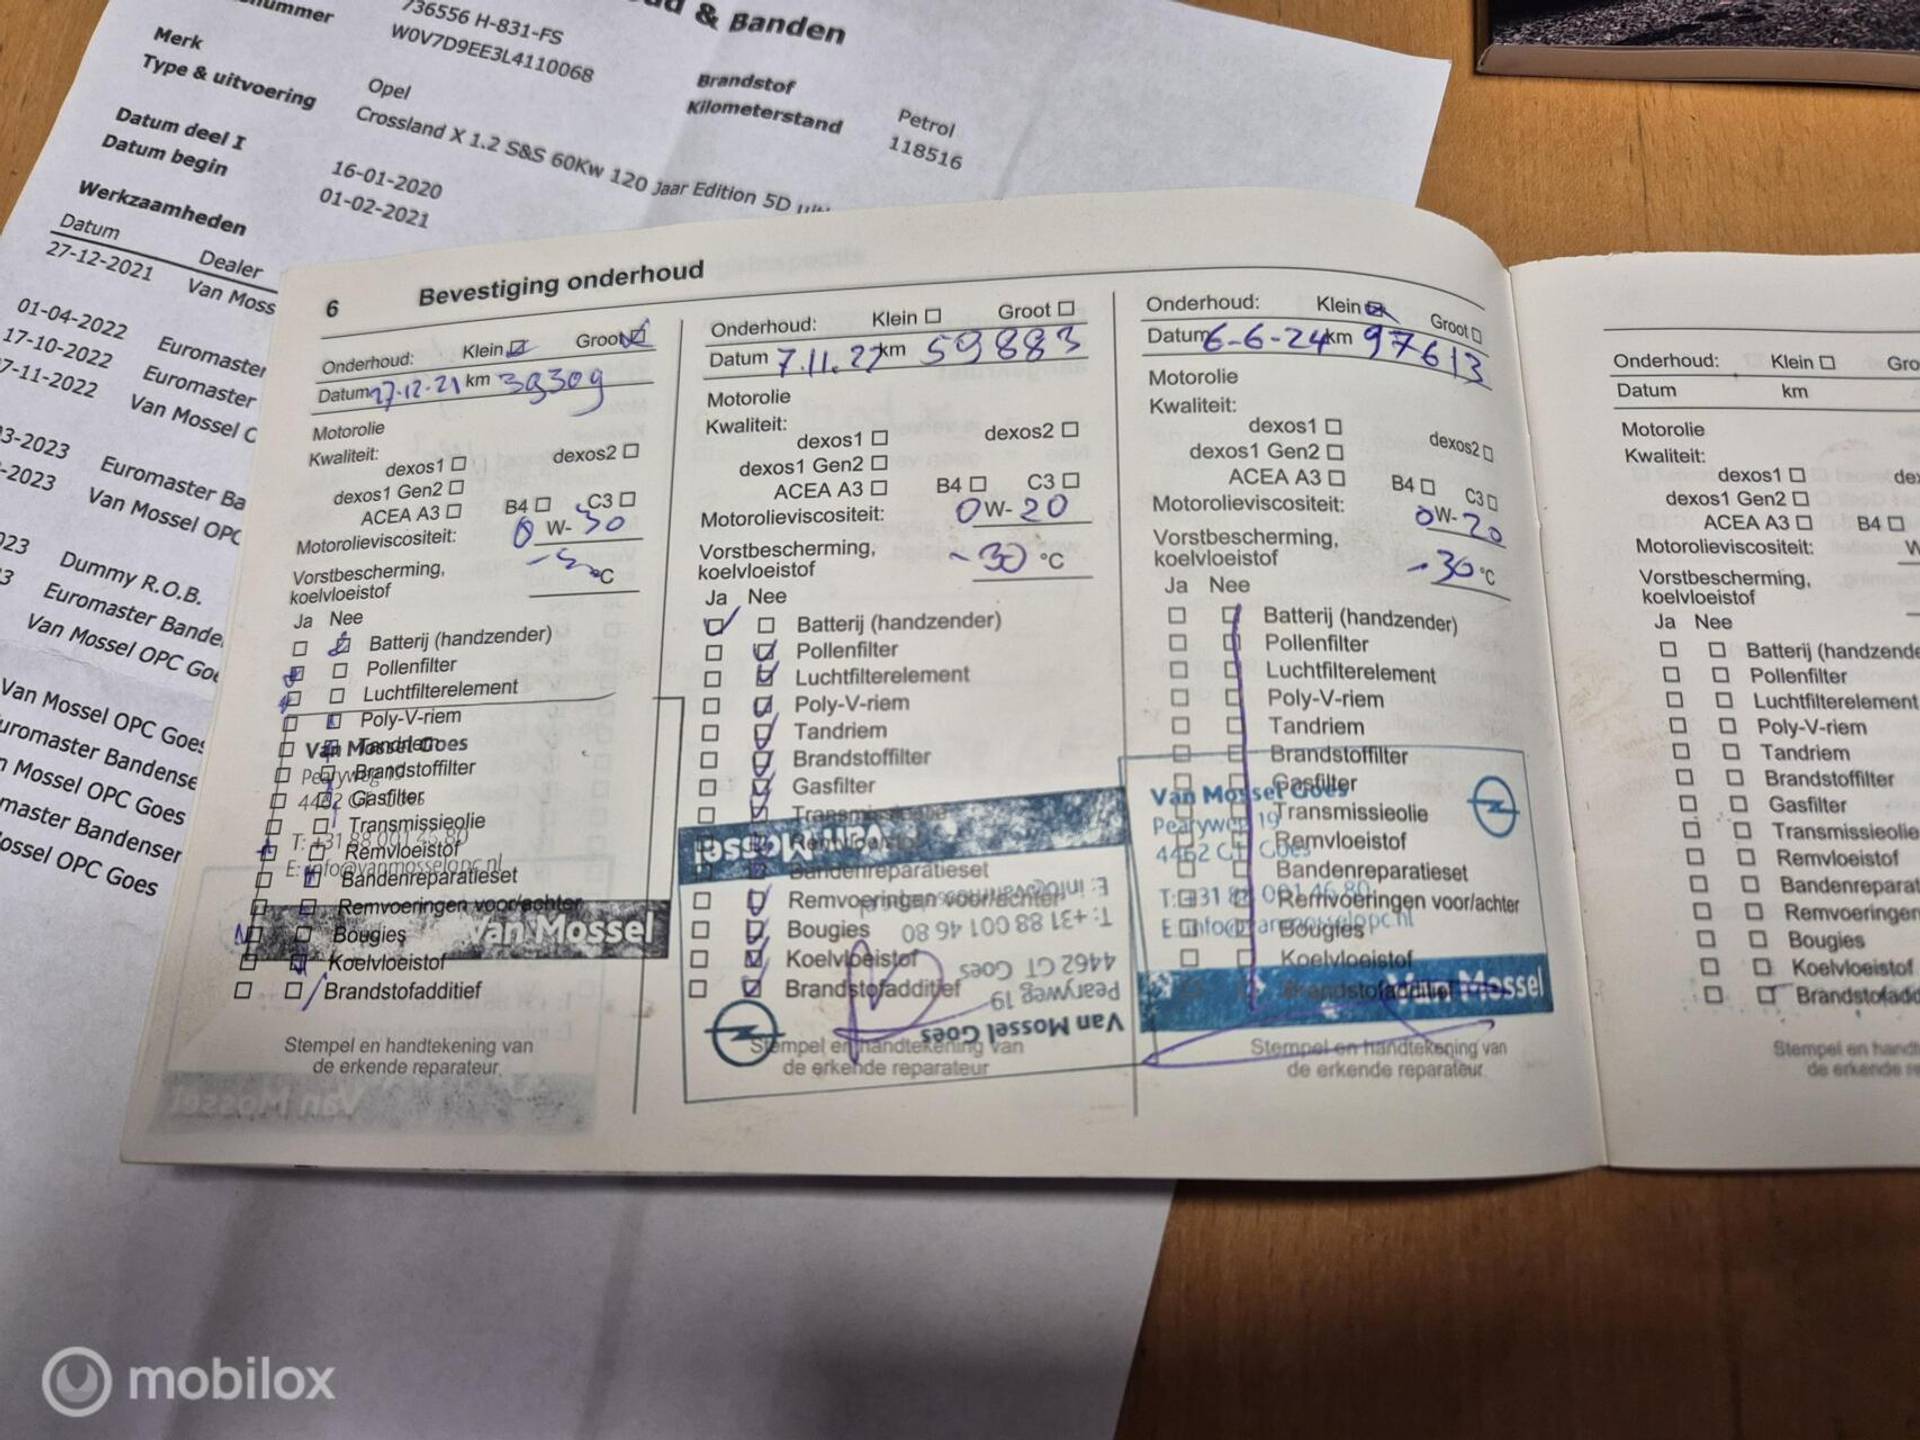 & Banden
736556 H-831-FS
W0V7D9EE3L4110068
Merk
Opel
Brandstof
Petrol
Type & uitvoering
Crossland X 1.2 S&S 60Kw 120 Jaar Edition 5D
Kilometerstand
118516
Datum deel I
16-01-2020
Datum begin
01-02-2021
Werkzaamheden
Datum
Dealer
27-12-2021
Van Moss
01-04-2022
Euromaster
17-10-2022
Euromaster
7-11-2022
Van Mossel O
3-2023
Euromaster Ba
-2023
Van Mossel OPC
023
Dummy R.O.B.
3
Euromaster Bande
Van Mossel OPC Goe
Van Mossel OPC Goes
uromaster Bandense
n Mossel OPC Goes
master Bandenser
ossel OPC Goes
6
Bevestiging onderhoud
Onderhoud: Klein Groot
Datum 27.12.21 km 39309
Motorolie
Kwaliteit:
dexos1 dexos2
dexos1 Gen2
ACEA A3 B4 C3
Motorolieviscositeit: 0 W- 30
Vorstbescherming,
koelvloeistof °C
Ja Nee
Batterij (handzender)
Pollenfilter
Luchtfilterelement
Poly-V-riem
Tandriem
Brandstoffilter
Gasfilter
Transmissieolie
Remvloeistof
Bandenreparatieset
Remvoeringen voor/achter
Bougies
Koelvloeistof
Brandstofadditief
Van Mossel Goes
Pearyweg 19
E: info@vanmosselopc.nl
Van Mossel
Stempel en handtekening van
de erkende reparateur.
Onderhoud: Klein Groot
Datum 7.11.22 km 59883
Motorolie
Kwaliteit:
dexos1 dexos2
dexos1 Gen2
ACEA A3 B4 C3
Motorolieviscositeit: 0 W- 20
Vorstbescherming,
koelvloeistof -30 °C
Ja Nee
Batterij (handzender)
Pollenfilter
Luchtfilterelement
Poly-V-riem
Tandriem
Brandstoffilter
Gasfilter
Transmissieolie
Remvloeistof
Bandenreparatieset
Remvoeringen voor/achter
Bougies
Koelvloeistof
Brandstofadditief
Van Mossel Goes
Pearyweg 19
4462 GT Goes
T: +31 88 001 46 80
Van Mossel
Stempel en handtekening van
de erkende reparateur
Onderhoud: Klein Groot
Datum 6-6-24 km 97613
Motorolie
Kwaliteit:
dexos1
dexos2
dexos1 Gen2
ACEA A3 B4 C3
Motorolieviscositeit: 0W-20
Vorstbescherming,
koelvloeistof -30 °C
Ja Nee
Batterij (handzender)
Pollenfilter
Luchtfilterelement
Poly-V-riem
Tandriem
Brandstoffilter
Gasfilter
Transmissieolie
Remvloeistof
Bandenreparatieset
Remvoeringen voor/achter
Bougies
Koelvloeistof
Brandstofadditief
Van Mossel Goes
Pearyweg 19
4462 GT Goes
T: +31 88 001 46 80
E: info@vanmosselopc.nl
Van Mossel
Stempel en handtekening van
de erkende reparateur
Onderhoud: Klein Gro
Datum km
Motorolie
Kwaliteit:
dexos1 dex
dexos1 Gen2
ACEA A3 B4
Motorolieviscositeit: W
Vorstbescherming,
koelvloeistof
Ja Nee
Batterij (handzende
Pollenfilter
Luchtfilterelement
Poly-V-riem
Tandriem
Brandstoffilter
Gasfilter
Transmissieolie
Remvloeistof
Bandenreparat
Remvoeringen
Bougies
Koelvloeistof
Brandstofadd
Stempel en handt
de erkende re
mobilox